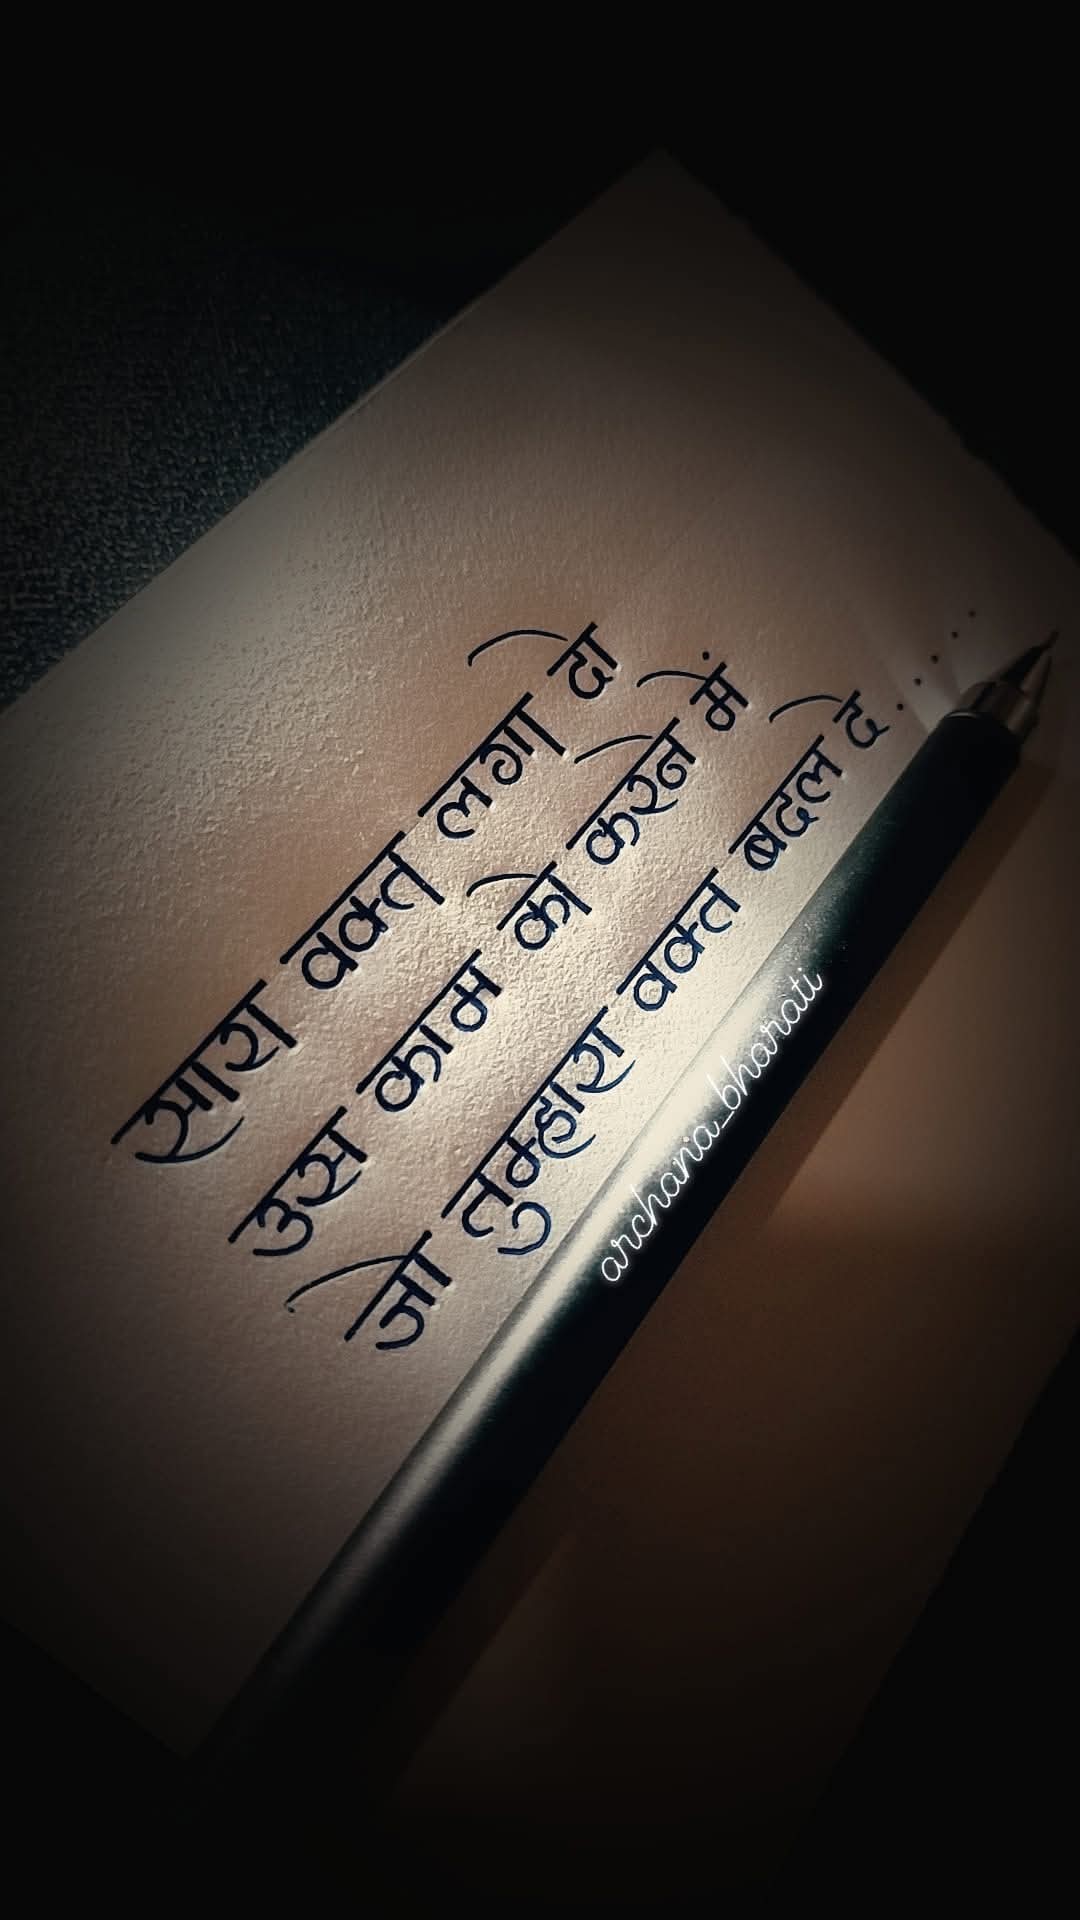 सारा वक्त लगा दो
उस काम को करने में
जो तुम्हारा वक्त बदल दे.....
archana_bharati